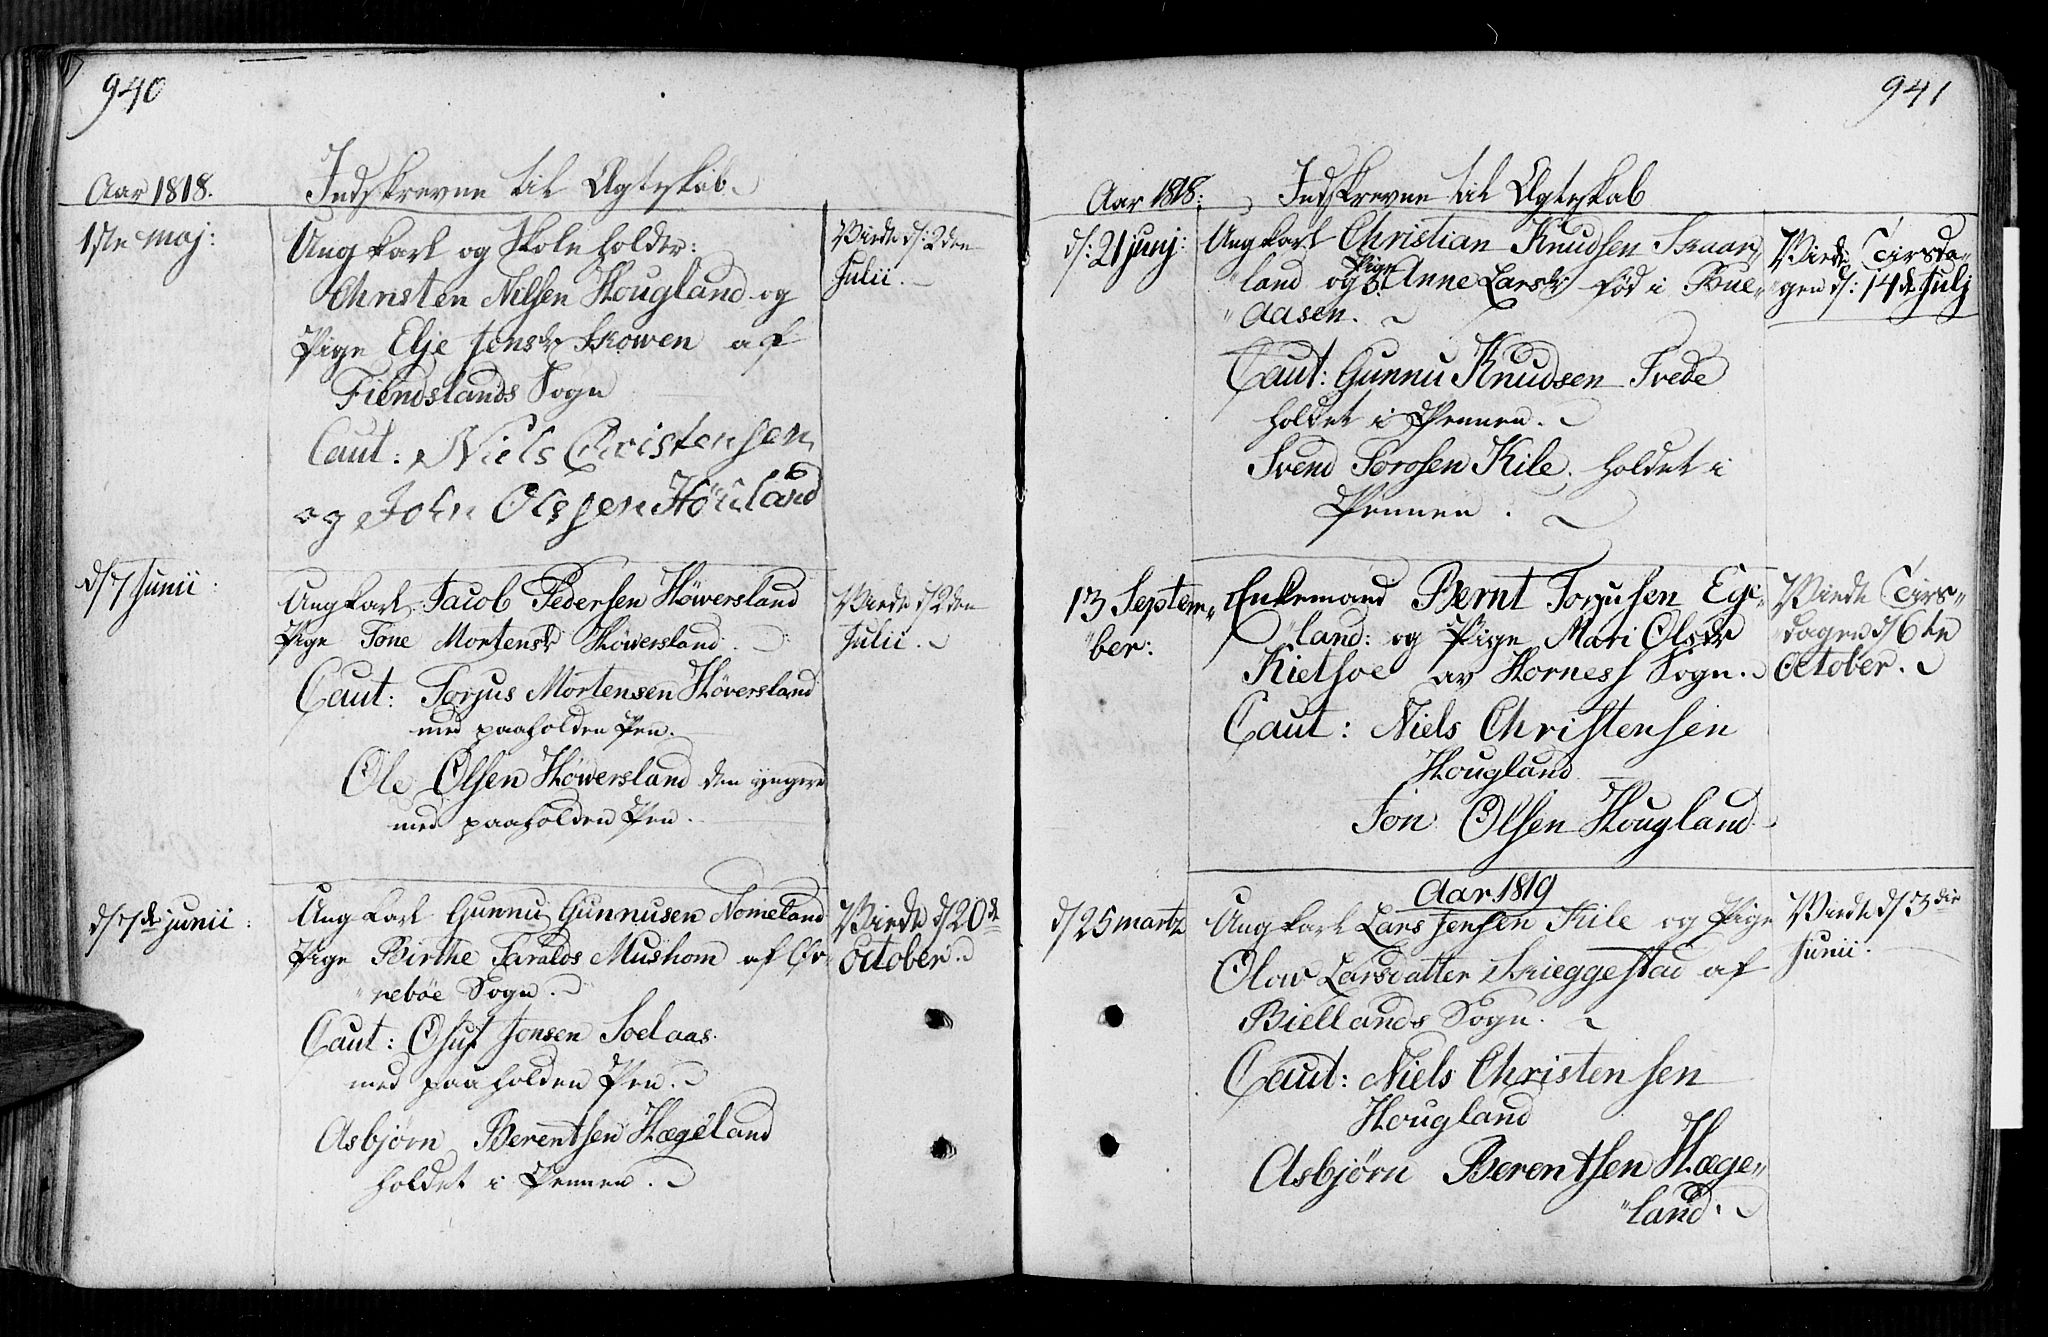 940
Aar 1818. Indskrevne til Ægteskab.
1ste Maj:
Ung karl og Skoleholder:
Christen Nilsen Hougland og
Pige Elje Jensdr Skowen af
Fiendslands Sogn
Caut: Niels Christensen
og John Olssen Höuland
Viede d: 2den
Julii.
d/7 Junii:
Ung karl Jacob Pedersen Höwersland
Pige Tone Mortensdr Höwersland.
Caut: Torjus Mortensen Höversland
med paaholden Pen.
Ole Olsen Höwersland den yngere
med paaholden Pen.
Viede d/2den
Julii.
d/7de Junii:
Ung karl Gunnu Gunnusen Nomeland
Pige Birthe Taralds Mushom af Øv-
"rebøe Sogn.
Caut: Osuf Jonsen Soelaas.
med paaholden Pen.
Asbjørn Berentsen Hægeland
holdet i Pennen.
Viede d/20de
October.
941
Aar 1818: Indskrevne til Ægteskab
d: 21 Junj:
Ung karl Christian Knudsen Skaar-
"land og Pige Anne Larsdr fød i Bue-
"aasen.
Caut: Gunnu Knudsen Tvede
holdet i Pennen.
Svend Torosen Kile. holdet i
Pennen.
Viede Tirsda-
"gen d: 14de Julj
13 Septem-
"ber:
Enkemand Bernt Torjusen Eie-
"land: og Pige Mari Olsdr
Kietsoe av Horness Sogn.
Caut: Niels Christensen
Hougland
Jon Olsen Hougland.
Viede Tirs-
"dagen d/6te
October.
Aar 1819
d/25 Martz
Ung karl Lars Jensen Kile og Pige
Olav Larsdatter Skieggestad af
Biellands Sogn.
Caut: Niels Christensen
Hougland
Asbjørn Berentsen Hæge-
"land.
Viede d/3die
Junii.